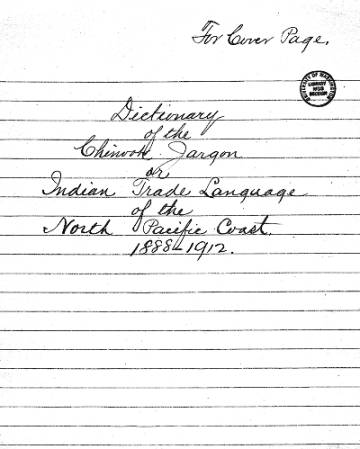 For Cover Page.
UNIVERSITY OF WASHINGTON
LIBRARY
MSS
SECTION
Dictionary
of the
Chinook Jargon
or
Indian Trade Language
of the
North Pacific Coast.
1888-1912.